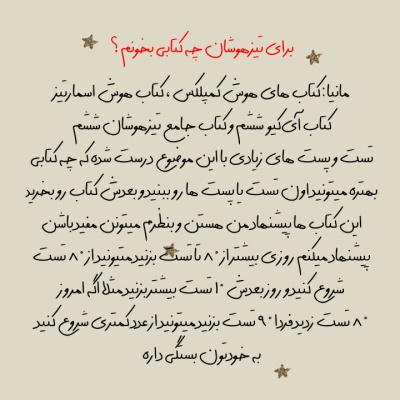 برای تیزهوشان چه کتابی بخونم ؟
مانیا:کتاب های هوش کمپلکس ، کتاب هوش اسمارتیز
کتاب آی‌کیو ششم و کتاب جامع تیزهوشان ششم
تست و پست های زیادی با این موضوع درست شده که چه کتابی
بهتره میتونید اون تست یا پست ها رو ببنید و بعدش کتاب رو بخرید
این کتاب ها پیشنهاد من هستن و بنظرم میتونن مفید باشن
پیشنهاد میکنم روزی بیشتر از ۸۰ تا تست بزنید میتونید از ۸۰ تست
شروع کنید و روز بعدش ۱۰ تست بیشتر بزنید مثلا اگه امروز
۸۰ تست زدید فردا ۹۰ تست بزنید میتونید از عدد کمتری شروع کنید
به خودتون بستگی داره